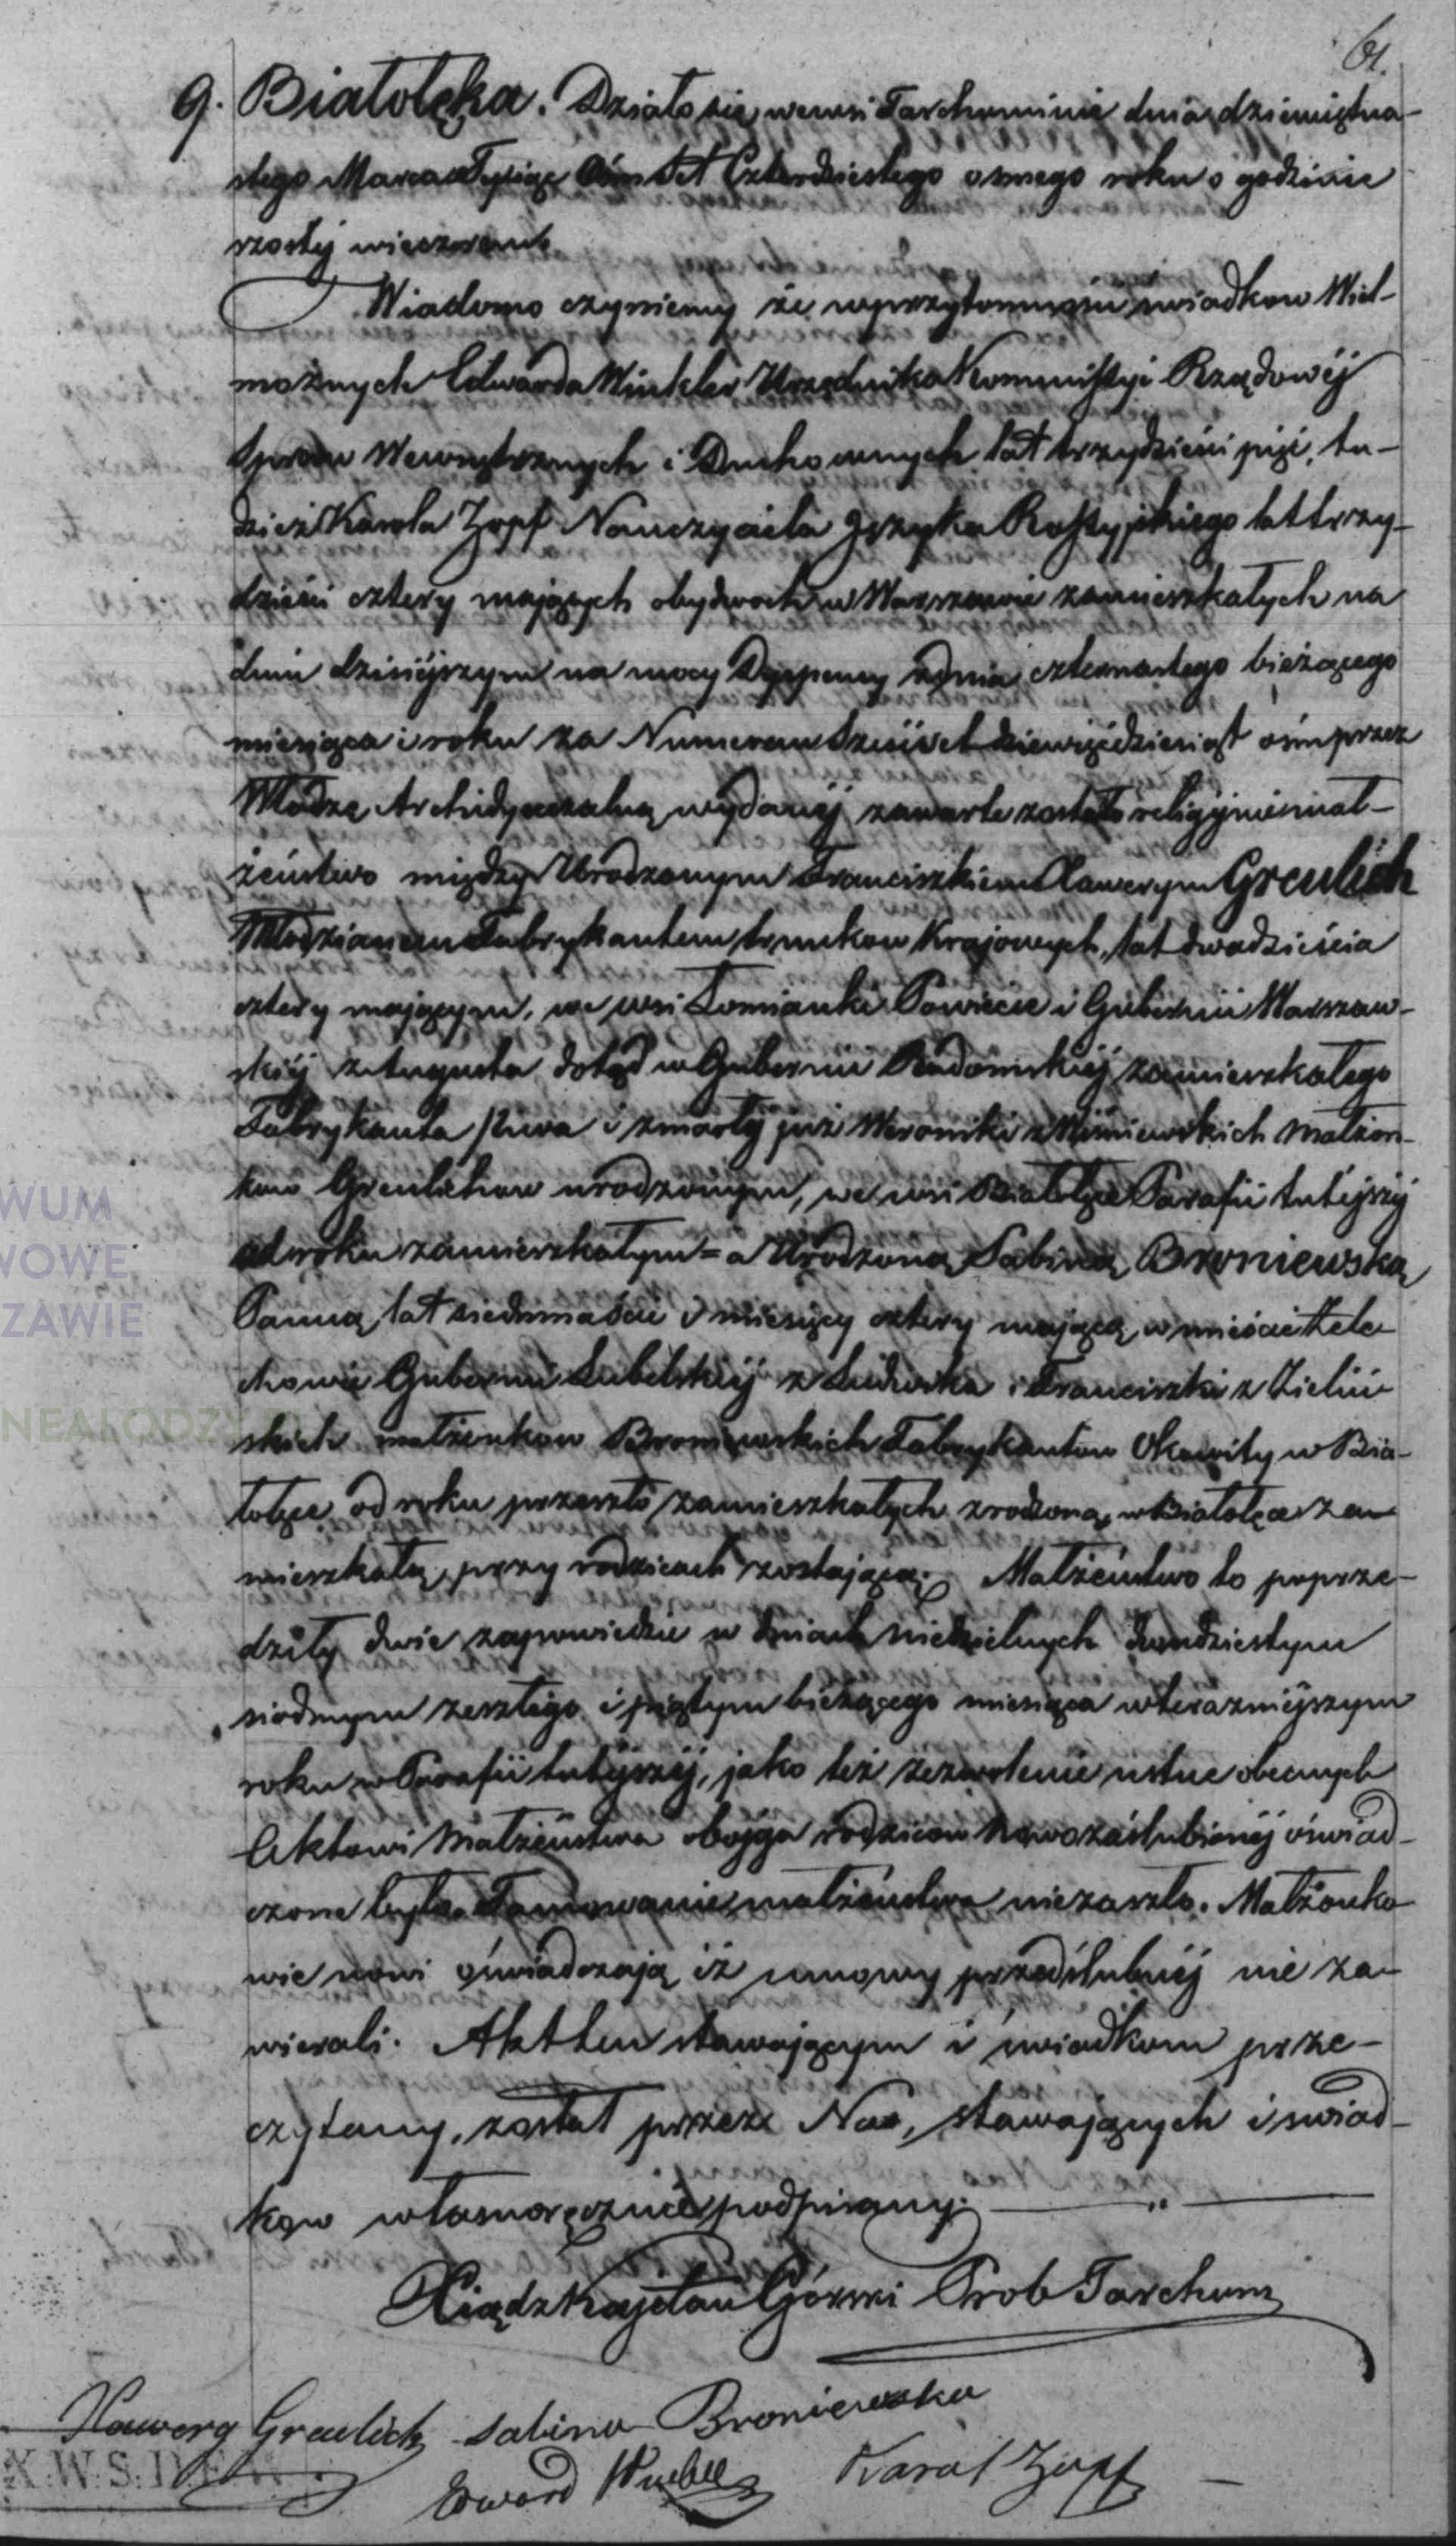 61.
9. Białołęka. Działo się we wsi Tarchominie dnia dziewiętna-
stego Marca Tysiąc Ośmset Czterdziestego osmego roku o godzinie
szostéj wieczorem.
Wiadomo czyniemy że w przytomności swiadkow Wiel-
możnych Edwarda Winkler Urzędnika Kommissyi Rządowéj
Spraw Wewnętrznych i Duchownych lat trzydzieści pięć, tu-
dzież Karola Zopf Nauczyciela Języka Rossyjskiego lat trzy-
dzieści cztery mających obydwoch w Warszawie zamieszkałych na
dniu dzisiéjszym na mocy Dyspensy z dnia czternastego bieżącego
miesiąca i roku za Numerem sześćset dziewięćdziesiąt ośm przez
Władzę Archidyecezalną wydanéj zawarte zostało religijnie mał-
żeństwo między Urodzonym Franciszkiem Xawerym Greulich
Młodzianem Fabrykantem trunkow Krajowych, lat dwadzieścia
cztery mającym, we wsi Łomianki Powiecie i Gubernii Warszaw-
skiéj z Augusta dotąd w Gubernii Radomskiéj zamieszkałego
Fabrykanta Piwa i zmarłéj już Weroniki z Wiśniewskich małżon-
kow Greulichow urodzonym, we wsi Białołęce Parafii tutéjszéj
od roku zamieszkałym = a Urodzoną Sabiną Broniewską
Panną, lat siedmnaście i miesięcy cztery mającą, w mieście Żele-
chowie Gubernii Lubelskiéj z Ludwika i Franciszki z Zieliń-
skich małżonkow Broniewskich Fabrykantow Okowity w Bia-
łołęce od roku przeszło zamieszkałych zrodzoną, w Białołęce za-
mieszkałą, przy rodzicach zostającą. Małżeństwo to poprze-
dziły dwie zapowiedzie w dniach niedzielnych dwudziestym
siodmym zeszłego i piątym bieżącego miesiąca w terazniéjszym
roku w Parafii tutéjszéj, jako też zezwolenie ustne obecnych
Aktowi Małżeństwa obojga rodzicow nowozaślubionéj oświad-
czone było. Tamowanie małżeństwa niezaszło. Małżonko-
wie nowi oświadczają iż umowy przedślubnéj nie za-
wierali. Akt ten stawającym i swiadkom prze-
czytany, został przez Nas, stawających i swiad-
kow własnoręcznie podpisany.
Xiądz Kajetan Prob Tarchom
Xawery Greulich Sabina Broniewska
Edward Winkler Karol Zopf
WUM
WOWE
ZAWIE